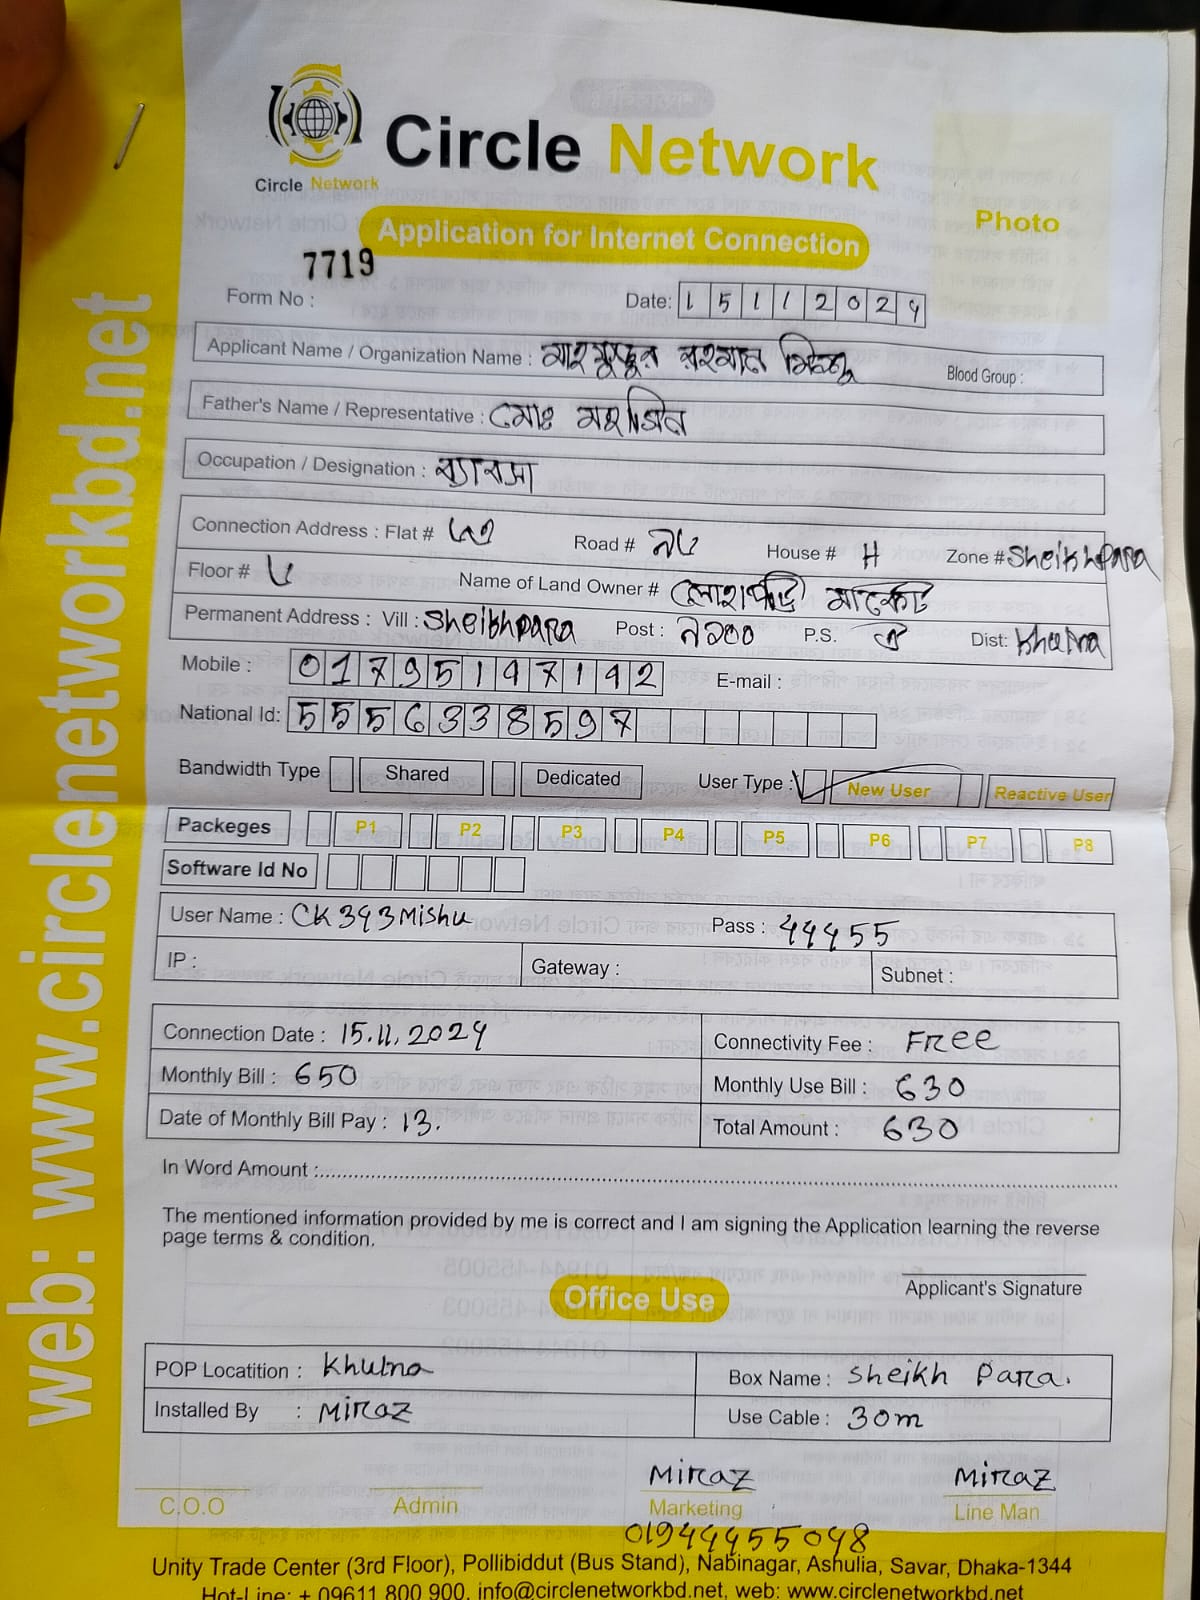 Circle Network
Circle Network
Photo
Application for Internet Connection
7719
Form No :
Date: 15112024
Applicant Name / Organization Name : মাহমুদুর রহমান মিশু
Blood Group :
Father's Name / Representative : মোঃ মহসিন
Occupation / Designation : ব্যাবসা
Connection Address : Flat # Road # House # H Zone # Sheikhpara
Floor # Name of Land Owner # লোহাপট্টি মার্কেট
Permanent Address : Vill : Sheikhpara Post : ৯১০০ P.S. Dist: Khulna
Mobile : 01795197192 E-mail :
National Id: 5556338597
Bandwidth Type Shared Dedicated User Type : New User Reactive User
Packeges P1 P2 P3 P4 P5 P6 P7 P8
Software Id No
User Name : CK393Mishu Pass : 44455
IP : Gateway : Subnet :
Connection Date : 15.11.2024 Connectivity Fee : Free
Monthly Bill : 650 Monthly Use Bill : 630
Date of Monthly Bill Pay : 13. Total Amount : 630
In Word Amount :
The mentioned information provided by me is correct and I am signing the Application learning the reverse
page terms & condition.
Applicant's Signature
Office Use
POP Locatition : Khulna Box Name : Sheikh Para.
Installed By : Miraz Use Cable : 30m
Miraz Miraz
C.O.O Admin Marketing Line Man
01944455048
Unity Trade Center (3rd Floor), Pollibiddut (Bus Stand), Nabinagar, Ashulia, Savar, Dhaka-1344
Hot-Line: + 09611 800 900, info@circlenetworkbd.net, web: www.circlenetworkbd.net
web: www.circlenetworkbd.net